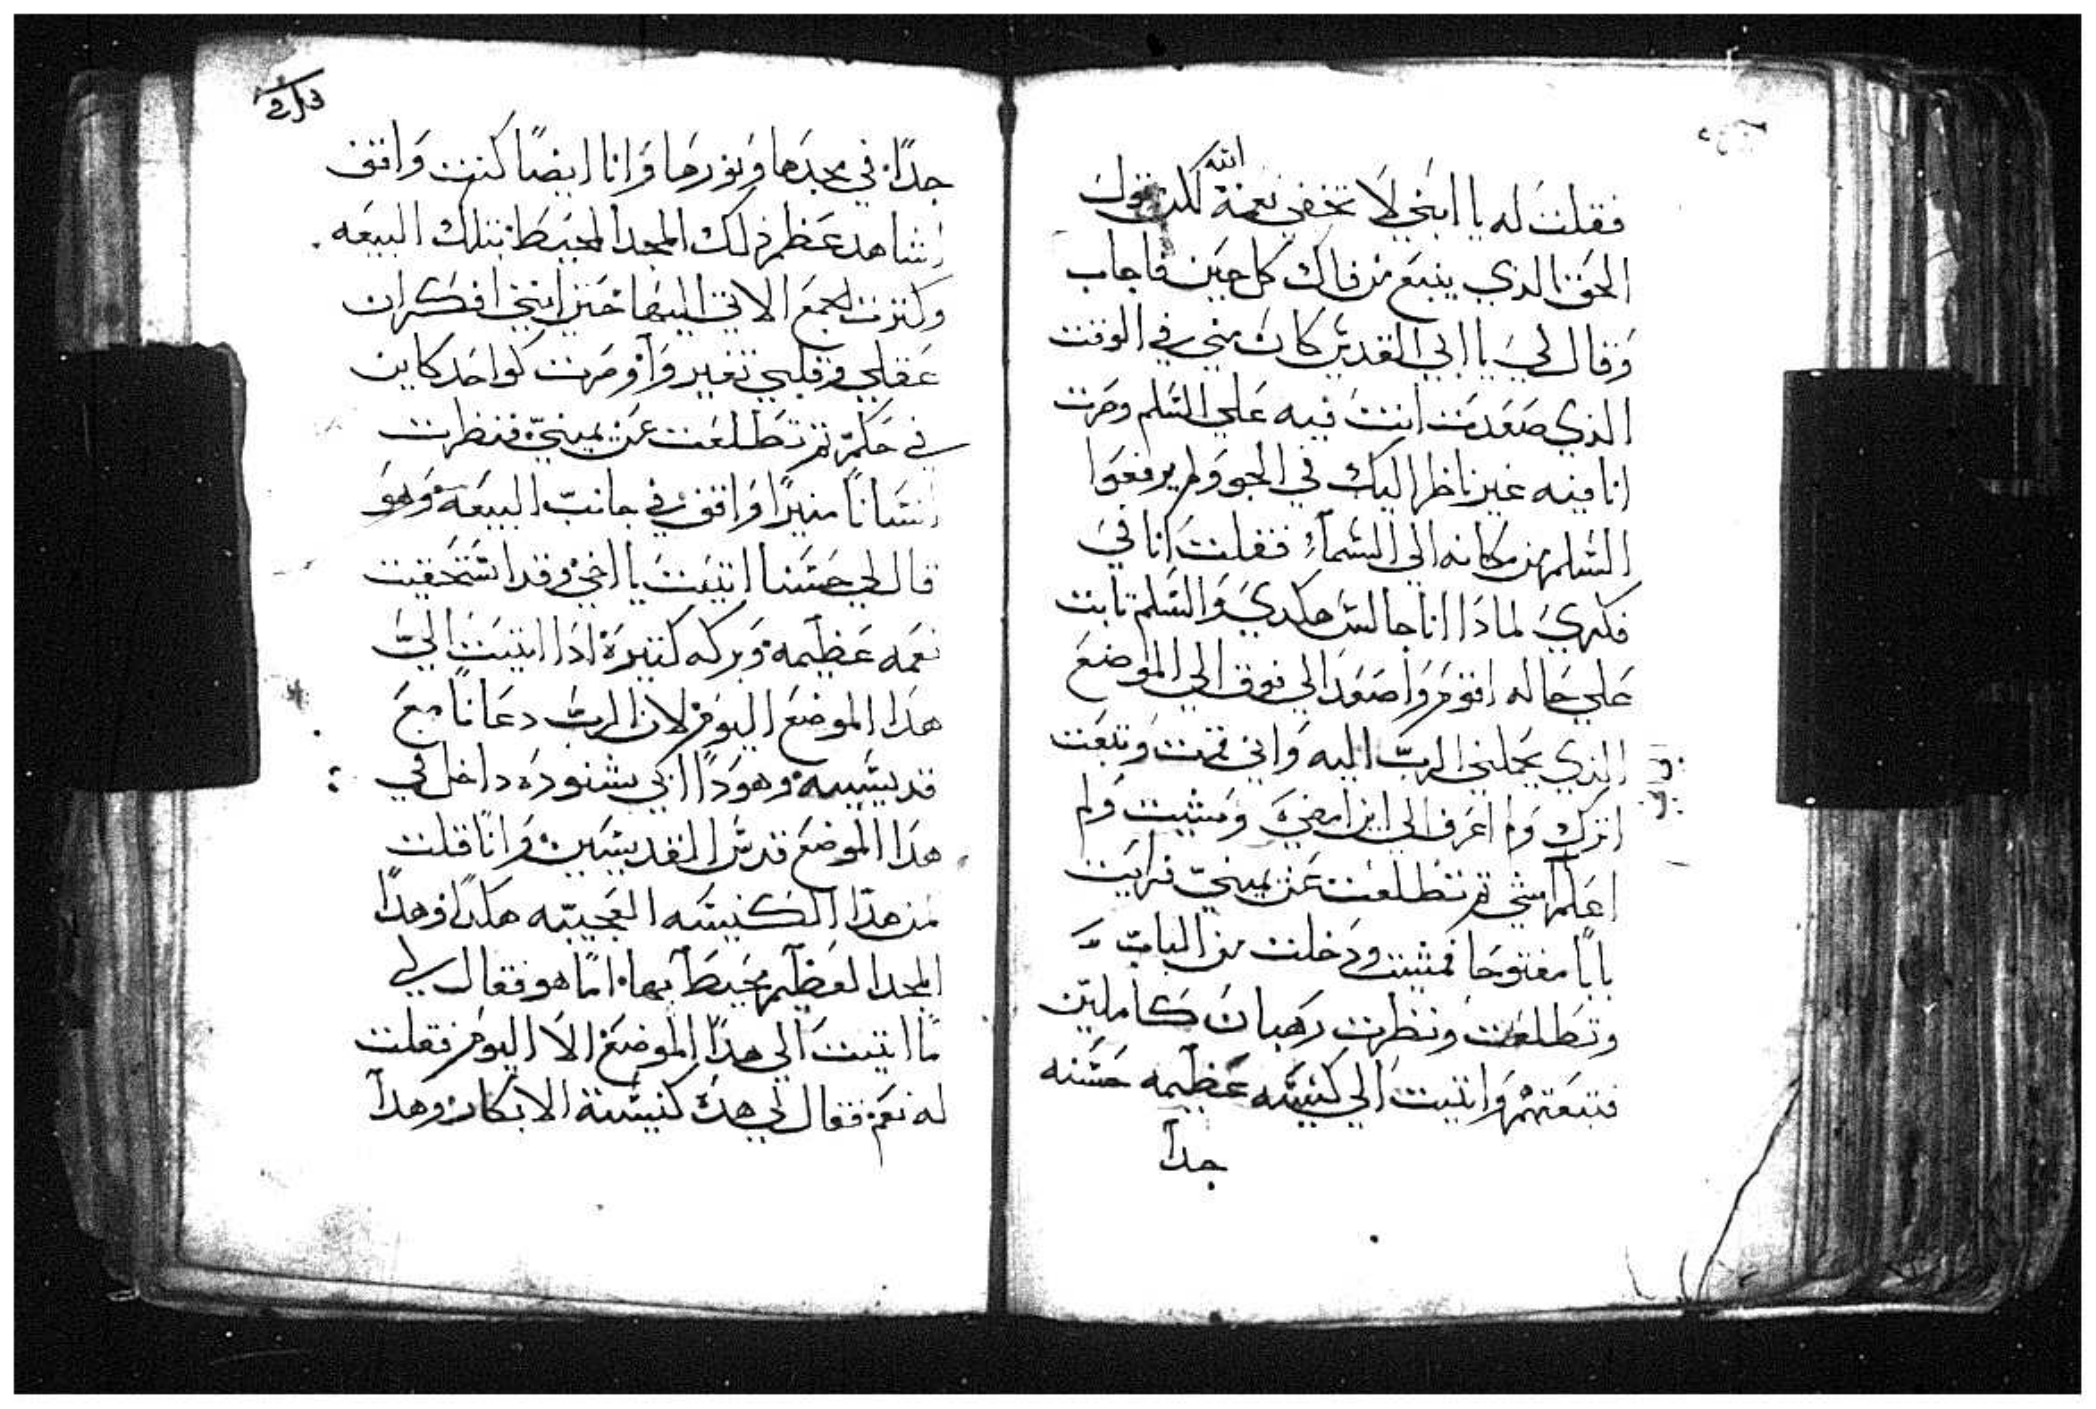 فقلت له يا ابني لا تخفي نعمة الله لكن قول
الحق الذي ينبع من فاك كل حين فاجاب
وقال لي يا ابي القديس كان مني في الوقت
الذي صعدت انت فيه علي السلم وصرت
انا فيه غير ناظر اليك في الجو ولم يرفعوا
السلم من مكانه الي السماء فقلت انا في
فكري لماذا انا جالس هكدي والسلم تابت
علي حاله اقوم واصعد الي فوق الي الموضع
الذي يحملني الرب اليه واني قمت وتبعت
اترك ولم اعرف الي اين امضي ومشيت ولم
اعلم شي ثم تطلعت عن يميني فرايت
بابا مفتوحا فمشيت ودخلت من الباب
وتطلعت ونظرت رهبان كاملين
فتبعتهم واتيت الي كنيسه عظيمه حسنه
جدا
جدا في مجدها ونورها وانا ايضا كنت واقف
اشاهد عظم دلك المجد المحيط بتلك البيعه
وكترت الجمع الاتي اليها حتي انني افكر ان
عقلي وقلبي تغير وصرت كواحد كاين
في حلم ثم تطلعت عن يميني فنظرت
انسانا منيرا واقف في جانب البيعه وهو
قال لي حسنا اتيت يا اخي وقد استحقيت
نعمه عظيمه وبركه كتيرة ادا اتيت الي
هدا الموضع اليوم لان الرب دعانا مع
قديسيه وهودا ابي شنوده داخل في
هدا الموضع قدس القديسين وانا قلت
لمن هدا الكنيسه العجيبه هكدا وهدا
المجد العظيم محيط بها اما هو فقال لي
ما اتيت الي هدا الموضع الا اليوم فقلت
له نعم فقال لي هده كنيسة الابكار وهدا